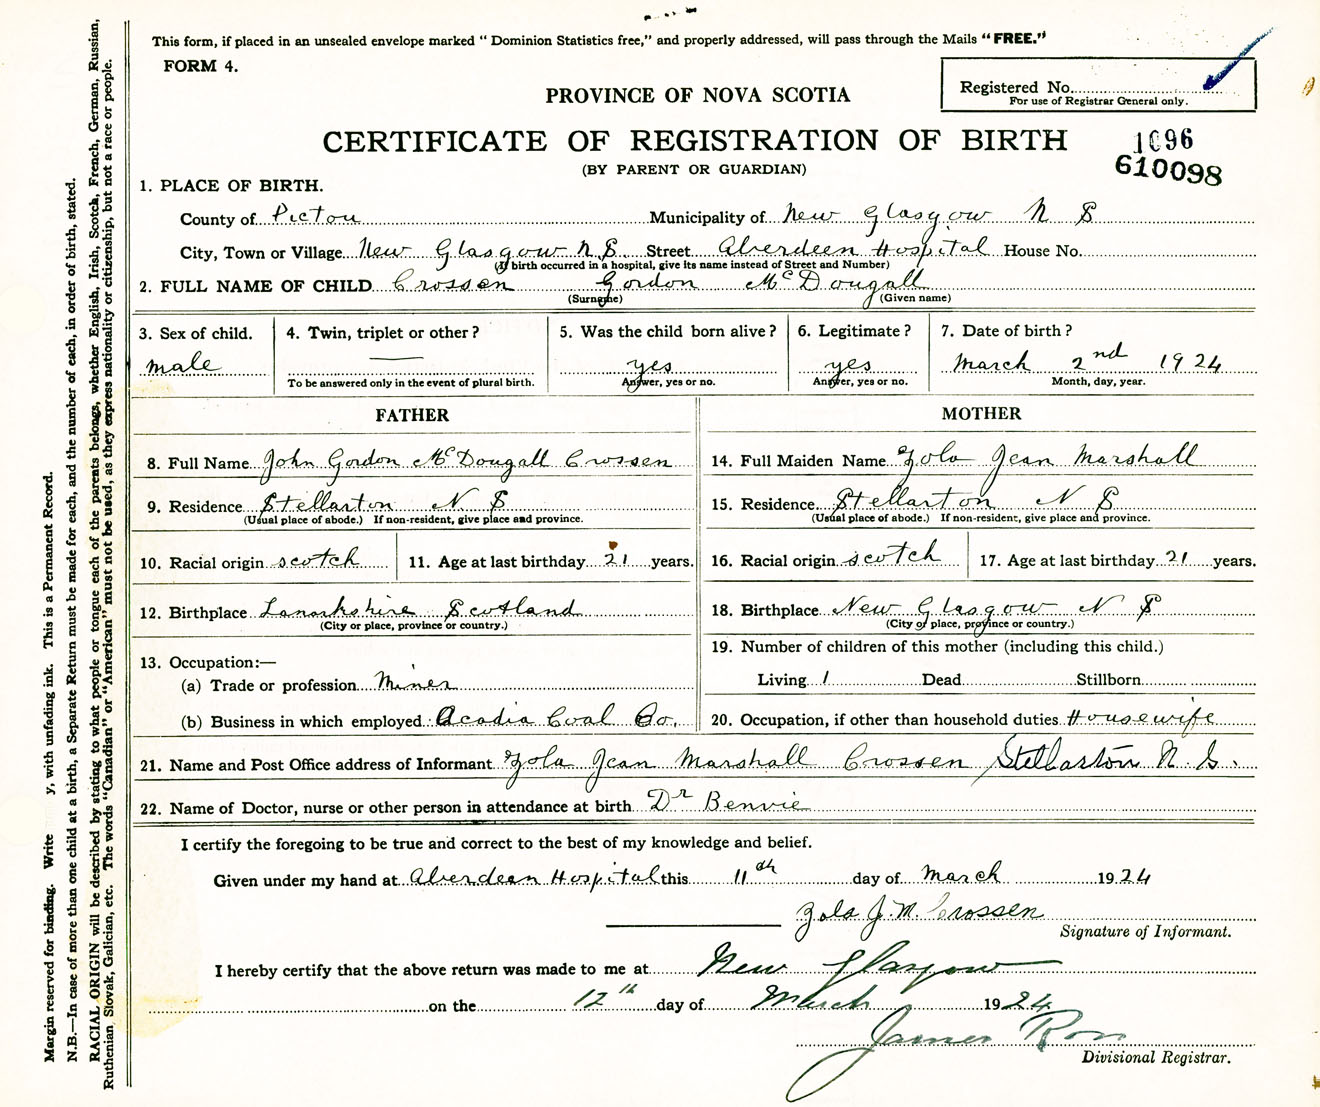 This form, if placed in an unsealed envelope marked "Dominion Statistics free," and properly addressed, will pass through the Mails "FREE."
FORM 4.
Registered No.
For use of Registrar General only.
PROVINCE OF NOVA SCOTIA
CERTIFICATE OF REGISTRATION OF BIRTH
(BY PARENT OR GUARDIAN)
1096
610098
1. PLACE OF BIRTH.
County of Pictou Municipality of New Glasgow N S
City, Town or Village New Glasgow N.S. Street Aberdeen Hospital House No.
(If birth occurred in a hospital, give its name instead of Street and Number)
2. FULL NAME OF CHILD Crossen Gordon McDougall
(Surname) (Given name)
3. Sex of child. male
4. Twin, triplet or other? —
To be answered only in the event of plural birth.
5. Was the child born alive? yes
Answer, yes or no.
6. Legitimate? yes
Answer, yes or no.
7. Date of birth? March 2nd 1924
Month, day, year.
FATHER
8. Full Name John Gordon McDougall Crossen
9. Residence Stellarton N S
(Usual place of abode.) If non-resident, give place and province.
10. Racial origin scotch 11. Age at last birthday 21 years.
12. Birthplace Lanarkshire Scotland
(City or place, province or country.)
13. Occupation:—
(a) Trade or profession Miner
(b) Business in which employed Acadia Coal Co.
MOTHER
14. Full Maiden Name Zola Jean Marshall
15. Residence Stellarton N S
(Usual place of abode.) If non-resident, give place and province.
16. Racial origin scotch 17. Age at last birthday 21 years.
18. Birthplace New Glasgow N S
(City or place, province or country.)
19. Number of children of this mother (including this child.)
Living 1 Dead Stillborn
20. Occupation, if other than household duties Housewife
21. Name and Post Office address of Informant Zola Jean Marshall Crossen Stellarton N.S.
22. Name of Doctor, nurse or other person in attendance at birth Dr Benvie
I certify the foregoing to be true and correct to the best of my knowledge and belief.
Given under my hand at Aberdeen Hospital this 11th day of March 1924
Zola J. M. Crossen
Signature of Informant.
I hereby certify that the above return was made to me at New Glasgow
on the 12th day of March 1924
James Ross
Divisional Registrar.
Margin reserved for binding. Write y, with unfading ink. This is a Permanent Record.
N.B.—In case of more than one child at a birth, a Separate Return must be made for each, and the number of each, in order of birth, stated.
RACIAL ORIGIN will be described by stating to what people or tongue each of the parents belongs, whether English, Irish, Scotch, French, German, Russian,
Ruthenian, Slovak, Galician, etc. The words "Canadian" or "American" must not be used, as they express nationality or citizenship, but not a race or people.